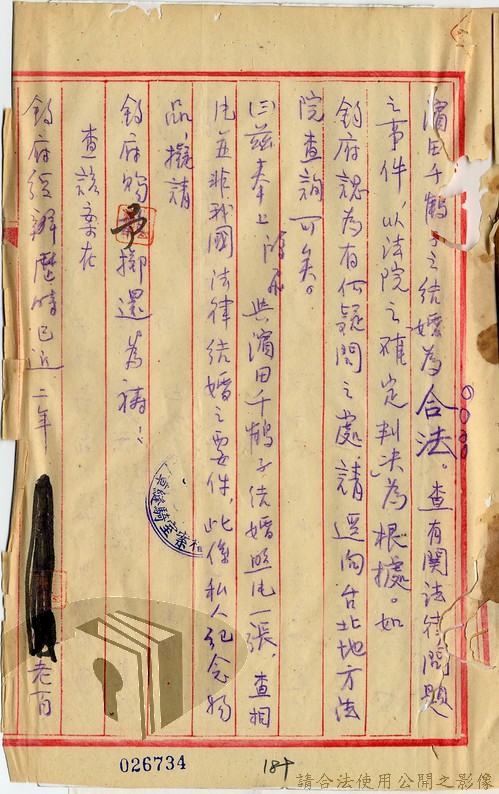 濱田千鶴子之結婚為合法。查有関法律問題
之事件以法院之確定判决為根據。如
鈞府認為有何疑問之處請逕向台北地方法
院查詢可矣。
(三)茲奉上 與濱田千鶴子结婚照片一張,查相
片並非我國法律結婚之要件,此係私人纪念物
品,擬請
鈞府賜予擲還為禱:
查該案在
鈞府經辦歷時已近二年 老百
檔案室騎縫章
026734
184
請合法使用公開之影像